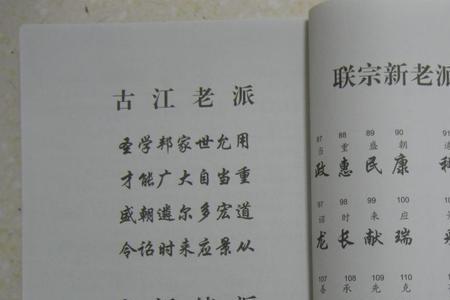 古江老派
圣学邦家世允用
才能广大自当重
盛朝遴尔多宏道
令诏时来应景从
联宗新老派
87 88 89 90
当 重 盛 朝
政 惠 民 康
97 98 99 100
诏 时 来 应
龙 长 献 瑞
107 108 109 110
善 承 先 克